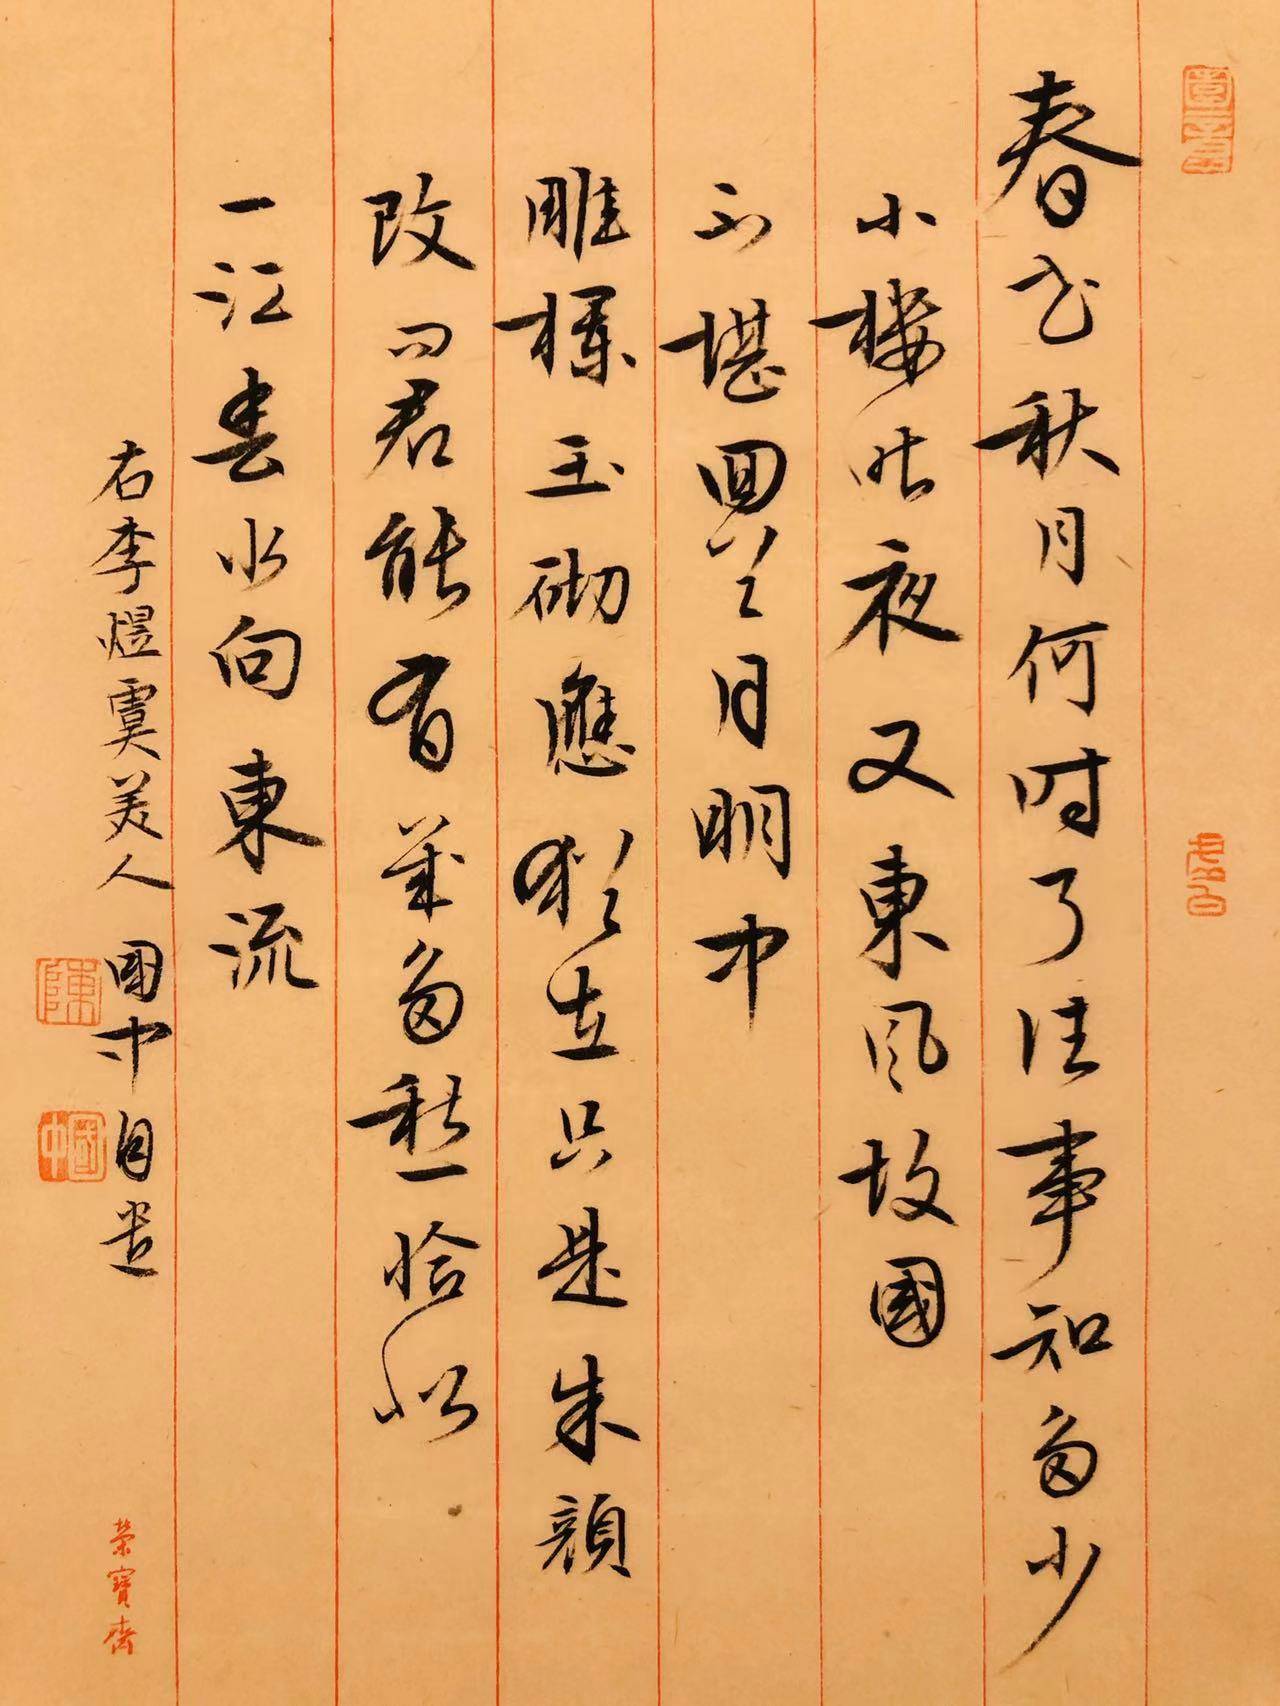 春花秋月何時了往事知多少
小樓昨夜又東風故國
不堪回首月明中
雕欄玉砌應猶在只是朱顔
改問君能有幾多愁恰似
一江春水向東流
右李煜虞美人國中自
陳
國中
榮寶齋